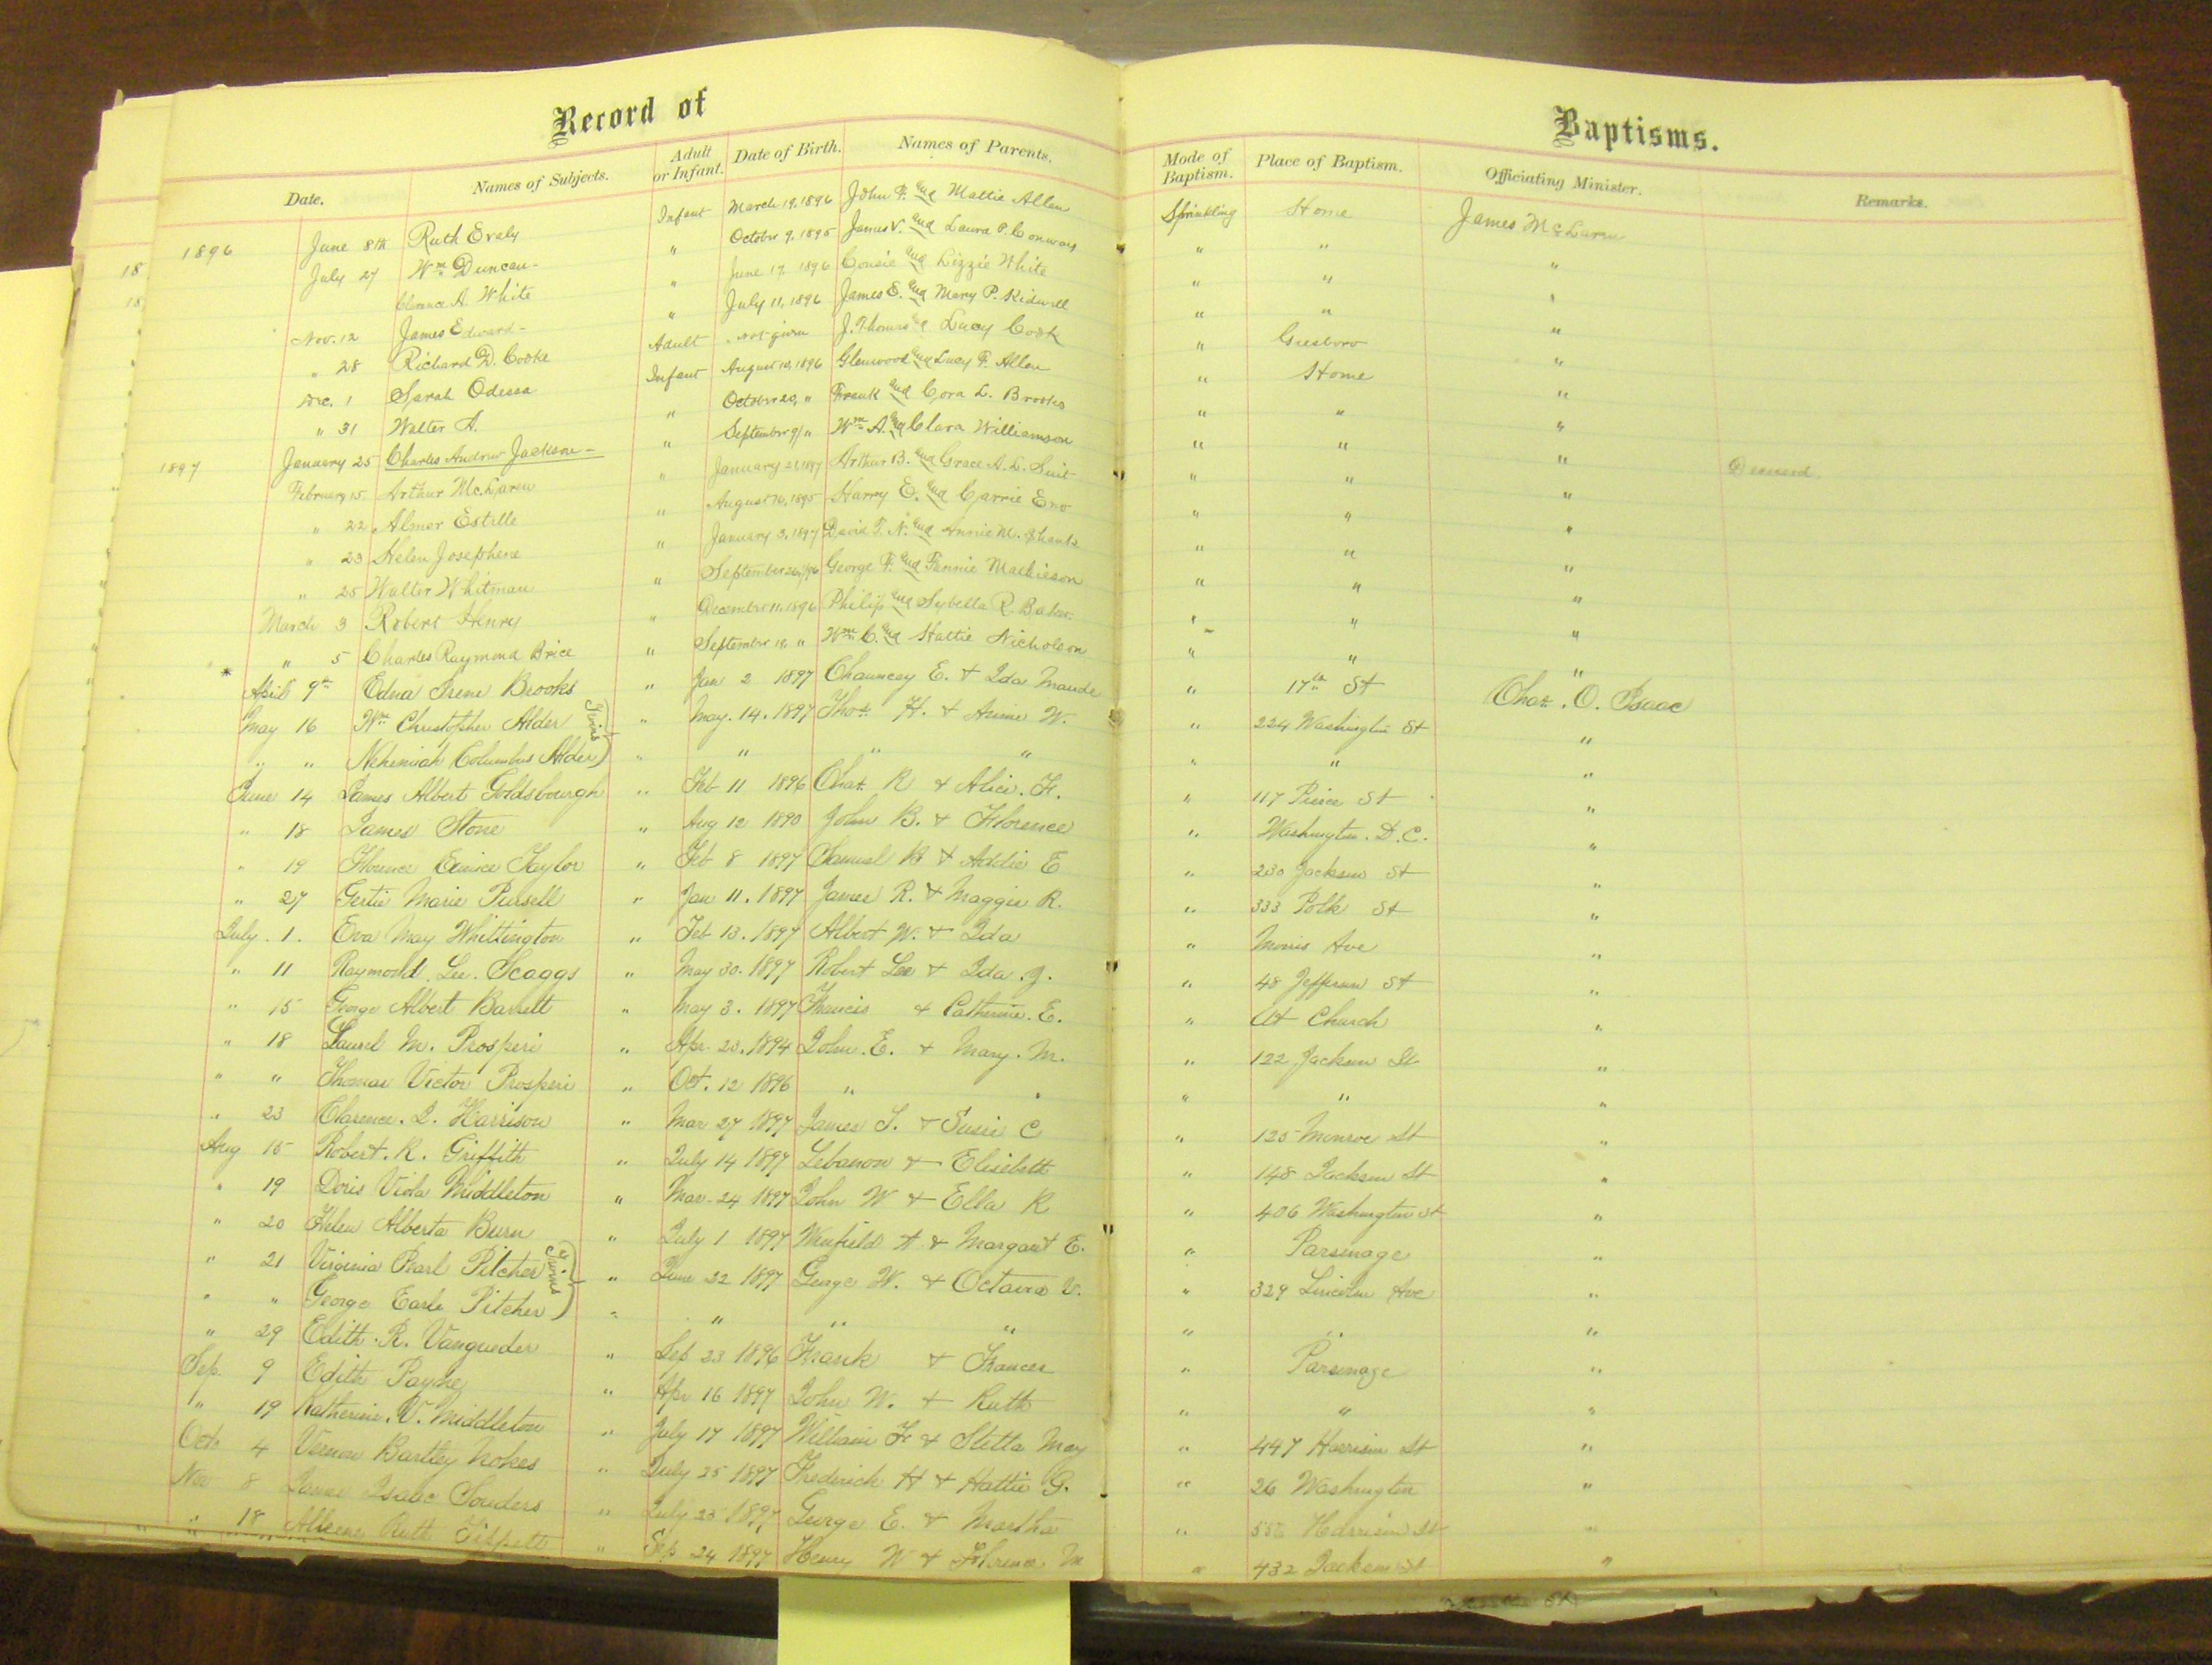 Record of Baptisms.
Date. Names of Subjects. Adult or Infant. Date of Birth. Names of Parents. Mode of Baptism. Place of Baptism. Officiating Minister. Remarks.
1896 June 8th Ruth Evely Infant March 19, 1896 John F. and Mattie Allen Sprinkling Home James McLaren
18 July 27 Wm Duncan - " October 9, 1895 James V. and Laura P. Conway " " "
18 Clarence A. White " June 17, 1896 and Lizzie White " " "
Nov. 12 James Edward - " July 11, 1896 James E. and Mary P. Kidwell " " "
" 28 Richard D. Cooke Adult not given J. Thomas and Lucy Cook " Giesboro "
Dec. 1 Sarah Odessa Infant August 10, 1896 Glenwood and Lucy F. Allen " Home "
" 31 Walter A. " October 20, " Frank and Cora L. Brooks " " "
1897 January 25 Charles Andrew Jackson - " September 9, " Wm A. and Clara Williamson " " "
February 15 Arthur McLaren " January 21, 1897 Arthur B. and Grace A. L. Suit " " " Deceased.
" 22 Almer Estelle " August 16, 1895 Harry E. and Carrie Eno " " "
" 23 Helen Josephene " January 3, 1897 David T. N. and Annie M. " " "
" 25 Walter Whitman " September 26, 1896 George F. and Fannie Mathieson " " "
March 3 Robert Henry " December 11, 1896 Philip and Sybella R. Baker " " "
" 5 Charles Raymond Brice " September 18, " Wm C. and Hattie Nicholson " " "
* April 9th Edna Irene Brooks " Jan 2 1897 Chauncey E. & Ida Maude " 17th St Chas. O. Isaac
May 16 Wm Christopher Alder Twins " May. 14. 1897 Thos. H. & Annie W. " 224 Washington St "
" " Nehemiah Columbus Alder " " " " " " "
June 14 James Albert Goldsbourgh " Feb 11 1896 Chas. R & Alice. F. " 117 Pierce St "
" 18 James Stone " Aug 12 1890 John B. & Florence " Washington. D.C. "
" 19 Florence Eunice Taylor " Feb 8 1897 Samuel B & Addie E " 230 Jackson St "
" 27 Gertie Marie Pursell " Jan 11. 1897 James R. & Maggie R. " 333 Polk St "
July. 1. Eva May Whittington " Feb 13. 1897 Albert W. & Ida " Morris Ave "
" 11 Raymond. Lee. Scaggs " May 30. 1897 Robert Lee & Ida. J. " 48 Jefferson St "
" 15 George Albert Barrett " May 3. 1897 Francis & Catherine. E. " At Church "
" 18 Laurel M. Prosperi " Apr. 23. 1894 John. E. & Mary. M. " 122 Jackson St "
" " Thomas Victor Prosperi " Oct. 12 1896 " " " " "
" 23 Clarence. I. Harrison " Mar 27 1897 James T. & Susie C " 125 Monroe St "
Aug 15 Robert. R. Griffith " July 14 1897 Lebanon & Elisebeth " 148 Jackson St "
" 19 Doris Viola Middleton " Mar. 24 1897 John W & Ella R " 406 Washington St "
" 20 Helen Alberta Burn " July 1 1897 Winfield A. & Margaret E. " Parsonage "
" 21 Virginia Pearl Pitcher Twins " June 22 1897 George W. & Octavia V. " 329 Lincoln Ave "
" " George Earle Pitcher " " " " " " "
" 29 Edith. R. Vangueder " Sep 23 1896 Frank & Frances " Parsonage "
Sep. 9 Edith Payne " Apr 16 1897 John W. & Ruth " " "
" 19 Katherine. V. Middleton " July 17 1897 William F & Stella May " 447 Harrison St "
Oct. 4 Vernon Bartley Nokes " July 25 1897 Frederick H & Hattie G. " 26 Washington "
Nov 8 James Isaac Souders " July 25 1897 George E. & Martha " Harrison St "
" 18 Ruth Tippett " Sep 24 1897 Henry W & Florence M " 432 Jackson St "